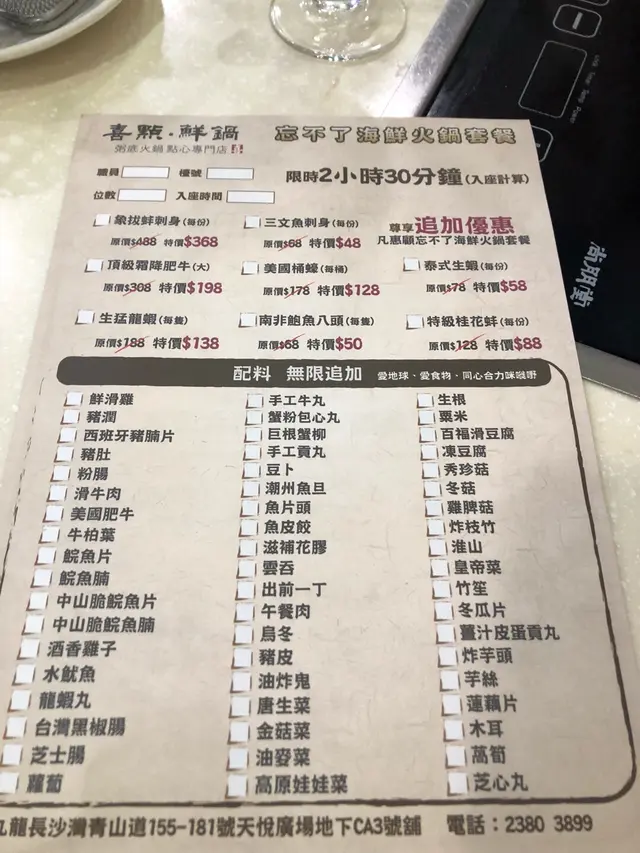 喜點·鮮鍋 忘不了海鮮火鍋套餐
粥底火鍋 點心專門店
職員 檯號 限時2小時30分鐘(入座計算)
位數 入座時間
象拔蚌刺身(每份) 三文魚刺身(每份) 尊享追加優惠
原價$488 特價$368 原價$68 特價$48 凡惠顧忘不了海鮮火鍋套餐
頂級霜降肥牛(大) 美國桶蠔(每桶) 泰式生蝦(每份)
原價$308 特價$198 原價$178 特價$128 原價$78 特價$58
生猛龍蝦(每隻) 南非鮑魚八頭(每隻) 特級桂花蚌(每份)
原價$188 特價$138 原價$68 特價$50 原價$128 特價$88
配料 無限追加 愛地球·愛食物·同心合力咪嘥嘢
鮮滑雞 手工牛丸 生根
豬潤 蟹粉包心丸 粟米
西班牙豬腩片 巨根蟹柳 百福滑豆腐
豬肚 手工貢丸 凍豆腐
粉腸 豆卜 秀珍菇
滑牛肉 潮州魚旦 冬菇
美國肥牛 魚片頭 雞脾菇
牛柏葉 魚皮餃 炸枝竹
鯇魚片 滋補花膠 淮山
鯇魚腩 雲吞 皇帝菜
中山脆鯇魚片 出前一丁 竹笙
中山脆鯇魚腩 午餐肉 冬瓜片
酒香雞子 烏冬 薑汁皮蛋貢丸
水魷魚 豬皮 炸芋頭
龍蝦丸 油炸鬼 芋絲
台灣黑椒腸 唐生菜 蓮藕片
芝士腸 金菇菜 木耳
蘿蔔 油麥菜 萵筍
高原娃娃菜 芝心丸
九龍長沙灣青山道155-181號天悅廣場地下CA3號舖 電話:2380 3899
尚朋堂